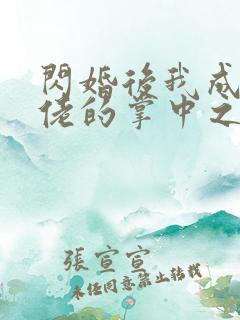 閃婚後我成
佬的掌中之
張宣宣
未任同意禁止轉載